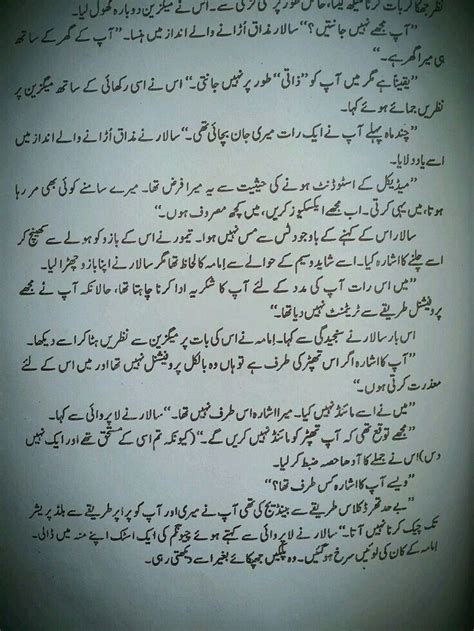 نظر جھکا کر بات کرنا سیکھ لیتا، خاص طور پر کسی لڑکی سے۔ اس نے میگزین دوبارہ کھول لیا۔
”آپ مجھے نہیں جانتیں؟“ سالار مذاق اڑانے والے انداز میں ہنسا۔ ”آپ کے گھر کے ساتھ
ہی میرا گھر ہے۔“
”یقیناً ہے مگر میں آپ کو ”ذاتی“ طور پر نہیں جانتی۔“ اس نے اسی رکھائی کے ساتھ میگزین پر
نظریں جمائے ہوئے کہا۔
”چند ماہ پہلے آپ نے ایک رات میری جان بچائی تھی۔“ سالار نے مذاق اڑانے والے انداز میں
اسے یاد دلایا۔
”میڈیکل کے اسٹوڈنٹ ہونے کی حیثیت سے یہ میرا فرض تھا۔ میرے سامنے کوئی بھی مر رہا
ہوتا، میں یہی کرتی۔ اب مجھے ایکسکیوز کریں، میں کچھ مصروف ہوں۔“
سالار اس کے کہنے کے باوجود ٹس سے مس نہیں ہوا۔ تیمور نے اس کے بازو کو ہولے سے کھینچ کر
اسے چلنے کا اشارہ کیا۔ اسے شاید وسیم کے حوالے سے امامہ کا لحاظ تھا مگر سالار نے اپنا بازو چھڑا لیا۔
”میں اس رات آپ کی مدد کے لئے آپ کا شکریہ ادا کرنا چاہتا تھا، حالانکہ آپ نے مجھے
پروفیشنل طریقے سے ٹریٹمنٹ نہیں دیا تھا۔“
اس بار سالار نے سنجیدگی سے کہا۔ امامہ نے اس کی بات پر میگزین سے نظریں ہٹا کر اسے دیکھا۔
”آپ کا اشارہ اگر اس تھپڑ کی طرف ہے تو ہاں وہ بالکل پروفیشنل نہیں تھا اور میں اس کے لئے
معذرت کرتی ہوں۔“
”میں نے اسے مائنڈ نہیں کیا۔ میرا اشارہ اس طرف نہیں تھا۔“ سالار نے لاپروائی سے کہا۔
”مجھے توقع تھی کہ آپ تھپڑ کو مائنڈ نہیں کریں گے۔“ (کیونکہ تم اسی کے مستحق تھے اور ایک نہیں
دس) اس نے جملے کا آدھا حصہ ضبط کر لیا۔
”ویسے آپ کا اشارہ کس طرف تھا؟“
”بے حد تھرڈ کلاس طریقے سے بینڈیج کی تھی آپ نے میری اور آپ کو پراپر طریقے سے بلڈ پریشر
تک چیک کرنا نہیں آتا۔“ سالار نے لاپروائی سے کہتے ہوئے چیونگم کی ایک اسٹک اپنے منہ میں ڈالی۔
امامہ کے کان کی لوئیں سرخ ہو گئیں۔ وہ پلکیں جھپکائے بغیر اسے دیکھتی رہی۔